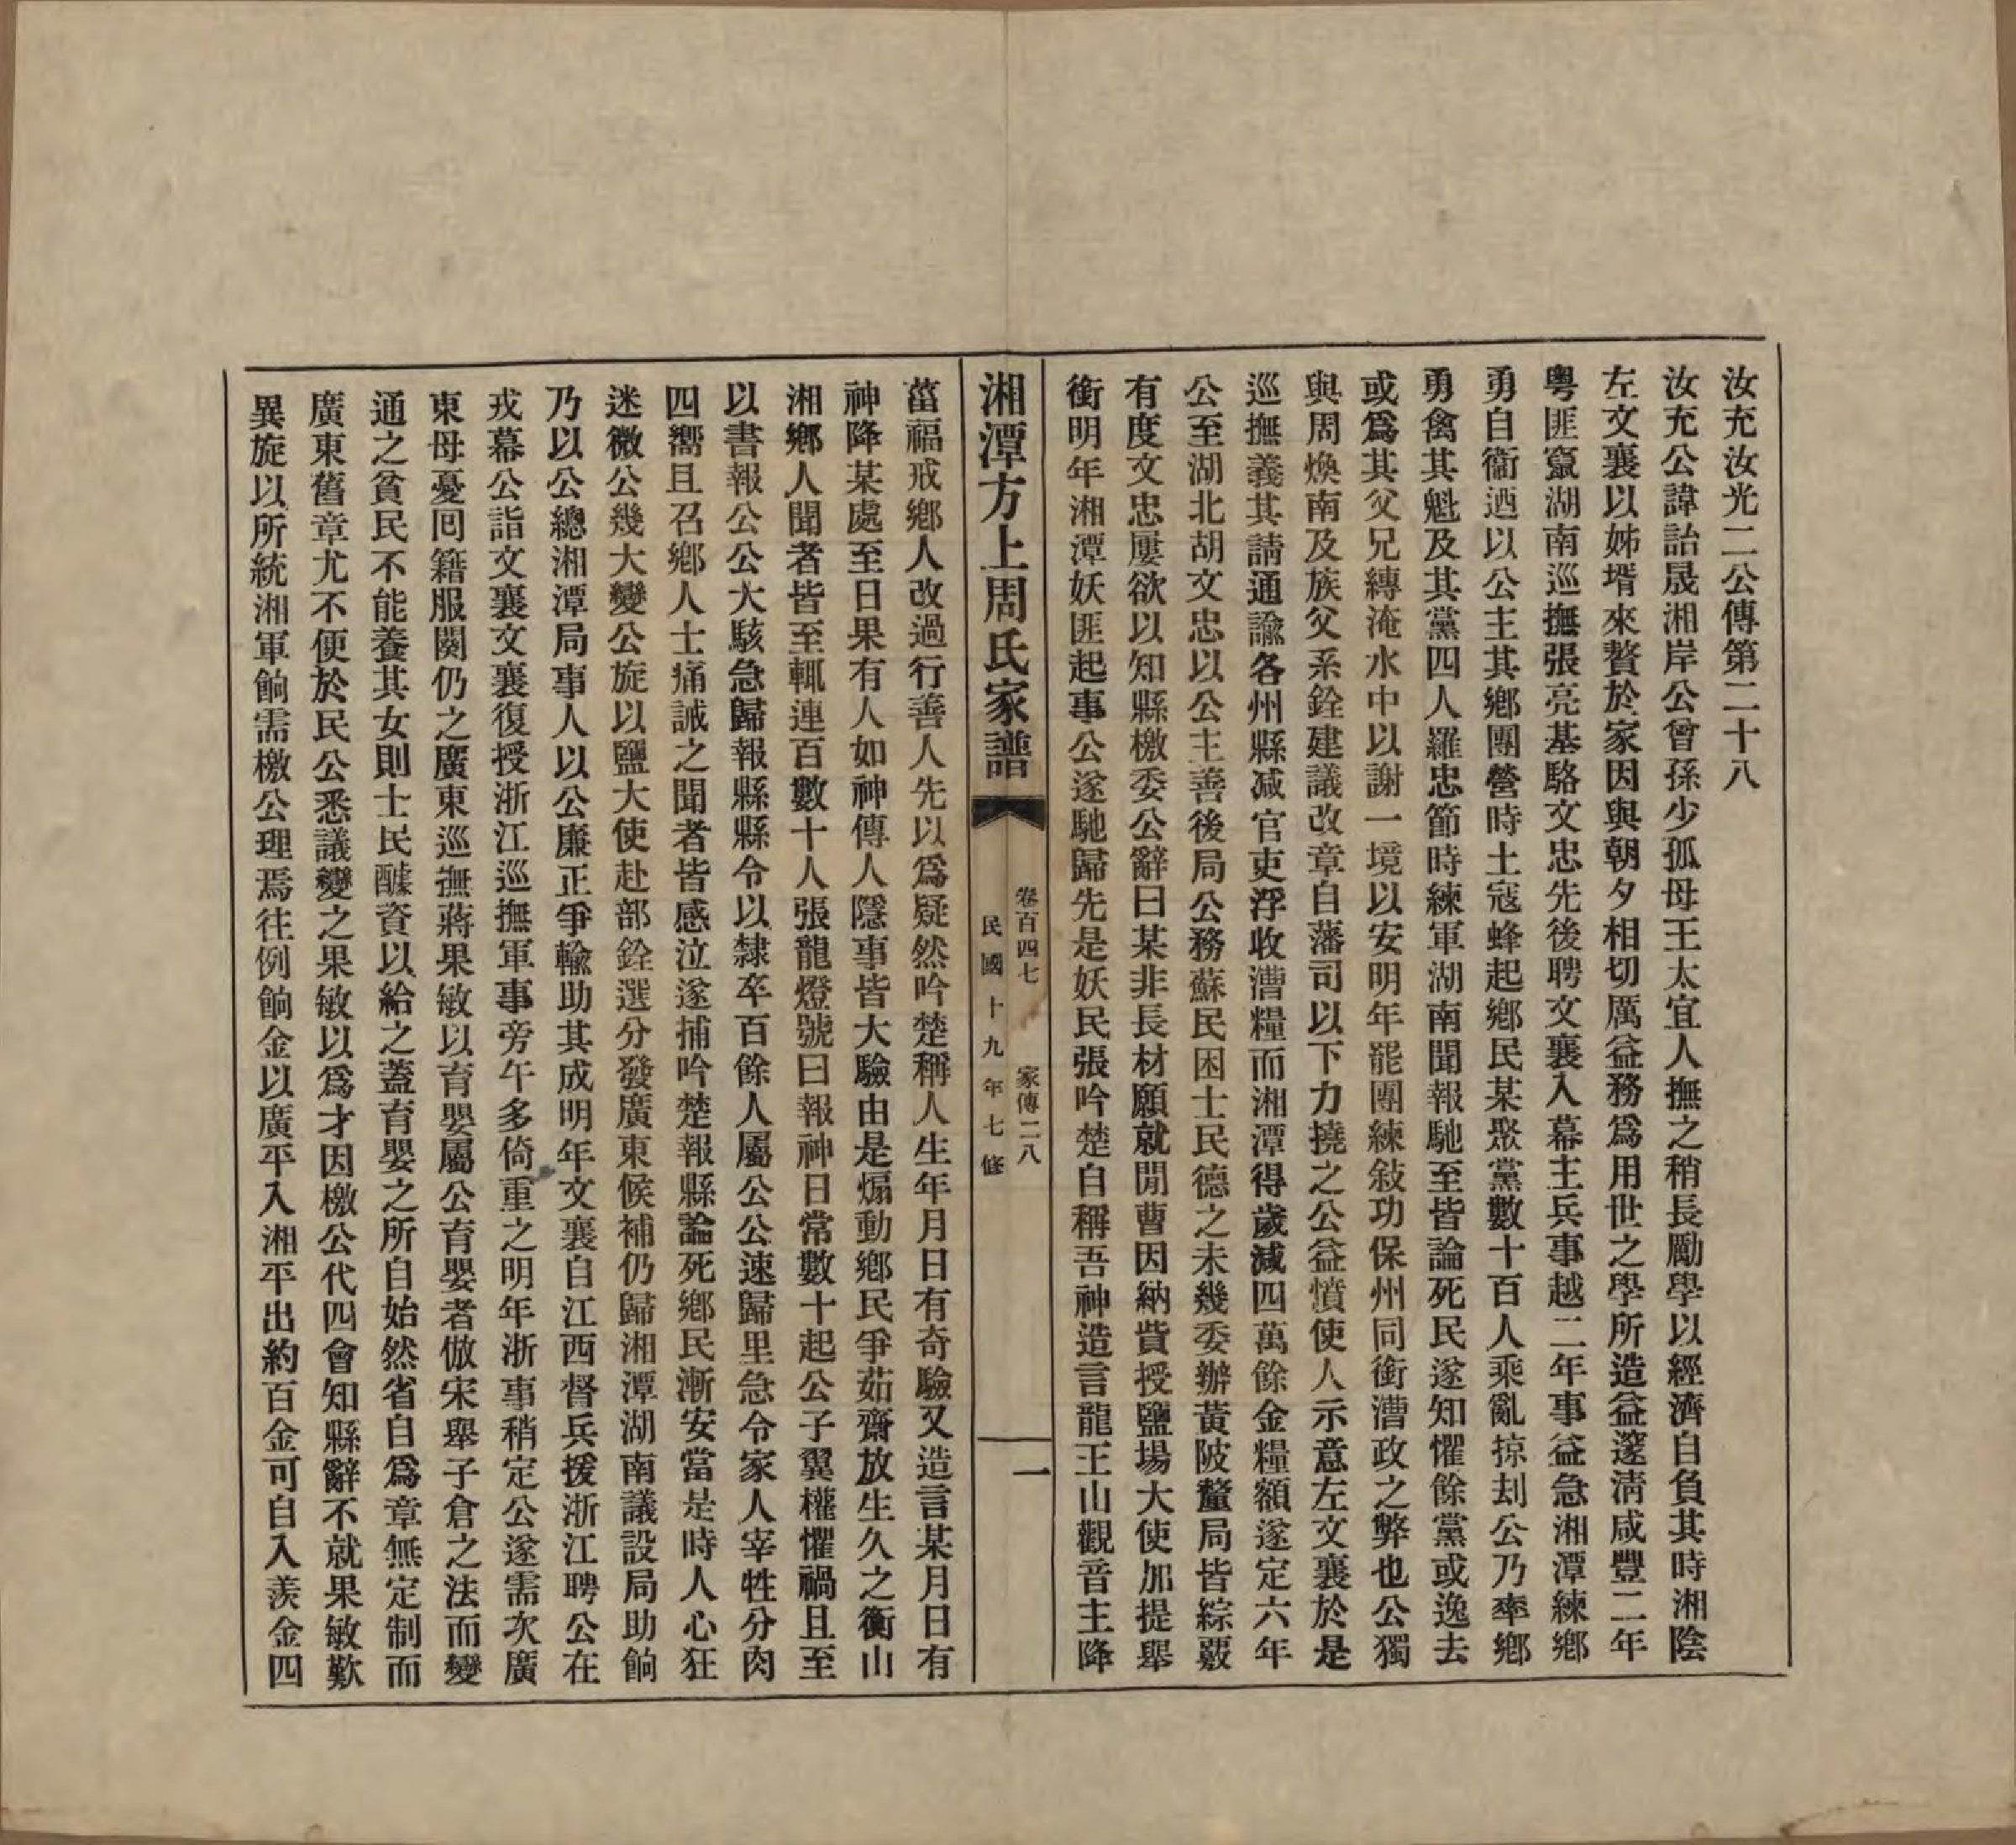 汝充汝光二公傳第二十八
汝充公諱詒晟湘岸公曾孫少孤母王太宜人撫之稍長勵學以經濟自負其時湘陰
左文襄以姊壻來贅於家因與朝夕相切厲益務爲用世之學所造益邃淸咸豐二年
粵匪竄湖南巡撫張亮基駱文忠先後聘文襄入幕主兵事越二年事益急湘潭練鄉
勇自衞迺以公主其鄉團營時土寇蜂起鄉民某聚黨數十百人乘亂掠刦公乃率鄉
勇禽其魁及其黨四人羅忠節時練軍湖南聞報馳至皆論死民遂知懼餘黨或逸去
或爲其父兄縛淹水中以謝一境以安明年罷團練敍功保州同銜漕政之弊也公獨
與周煥南及族父系銓建議改章自藩司以下力撓之公益憤使人示意左文襄於是
巡撫義其請通諭各州縣减官吏浮收漕糧而湘潭得歲減四萬餘金糧額遂定六年
公至湖北胡文忠以公主善後局公務蘇民困士民德之未幾委辦黃陂釐局皆綜覈
有度文忠屢欲以知縣檄委公辭曰某非長材願就閒曹因納貲授鹽場大使加提舉
銜明年湘潭妖匪起事公遂馳歸先是妖民張吟楚自稱吾神造言龍王山觀音主降
湘潭方上周氏家譜
卷百四七 家傳二八
民國十九年七修
一
菑福戒鄉人改過行善人先以爲疑然吟楚稱人生年月日有奇驗又造言某月日有
神降某處至日果有人如神傳人隱事皆大驗由是煽動鄉民爭茹齋放生久之衡山
湘鄉人聞者皆至輒連百數十人張龍燈號曰報神日常數十起公子翼權懼禍且至
以書報公公大駭急歸報縣縣令以隸卒百餘人屬公公速歸里急令家人宰牲分肉
四嚮且召鄉人士痛誡之聞者皆感泣遂捕吟楚報縣論死鄉民漸安當是時人心狂
迷微公幾大變公旋以鹽大使赴部銓選分發廣東候補仍歸湘潭湖南議設局助餉
乃以公總湘潭局事人以公廉正爭輸助其成明年文襄自江西督兵援浙江聘公在
戎幕公詣文襄文襄復授浙江巡撫軍事旁午多倚重之明年浙事稍定公遂需次廣
東母憂囘籍服闋仍之廣東巡撫蔣果敏以育嬰屬公育嬰者倣宋舉子倉之法而變
通之貧民不能養其女則士民醵資以給之蓋育嬰之所自始然省自爲章無定制而
廣東舊章尤不便於民公悉議變之果敏以爲才因檄公代四會知縣辭不就果敏歎
異旋以所統湘軍餉需檄公理焉往例餉金以廣平入湘平出約百金可自入羨金四